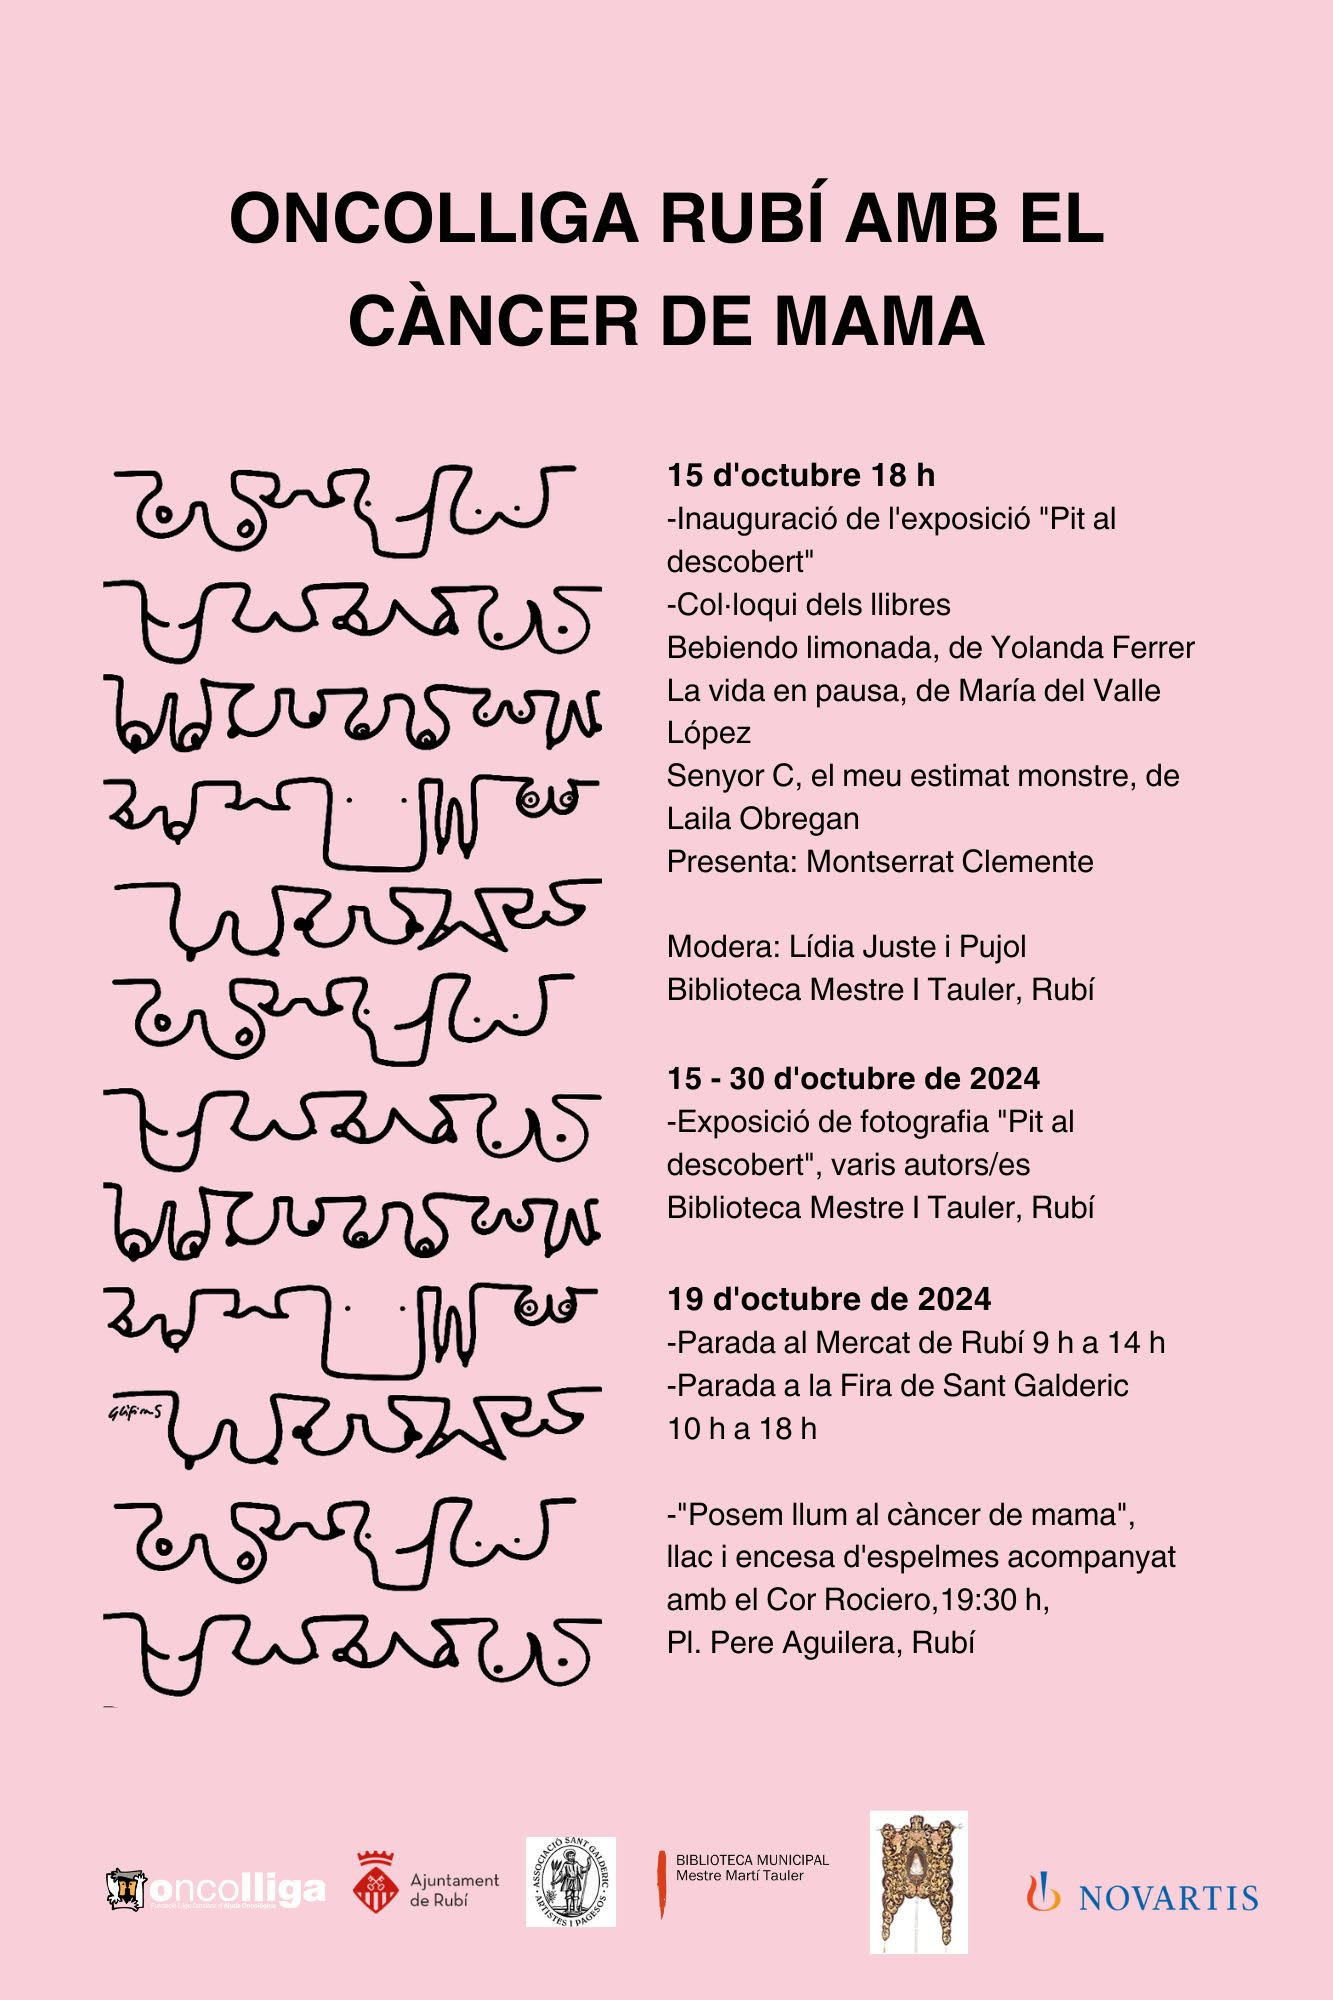 ONCOLLIGA RUBÍ AMB EL
CÀNCER DE MAMA
15 d'octubre 18 h
-Inauguració de l'exposició "Pit al
descobert"
-Col·loqui dels llibres
Bebiendo limonada, de Yolanda Ferrer
La vida en pausa, de María del Valle
López
Senyor C, el meu estimat monstre, de
Laila Obregan
Presenta: Montserrat Clemente
Modera: Lídia Juste i Pujol
Biblioteca Mestre I Tauler, Rubí
15 - 30 d'octubre de 2024
-Exposició de fotografia "Pit al
descobert", varis autors/es
Biblioteca Mestre I Tauler, Rubí
19 d'octubre de 2024
-Parada al Mercat de Rubí 9 h a 14 h
-Parada a la Fira de Sant Galderic
10 h a 18 h
-"Posem llum al càncer de mama",
llac i encesa d'espelmes acompanyat
amb el Cor Rociero,19:30 h,
Pl. Pere Aguilera, Rubí
oncolliga
Ajuntament
de Rubí
ASSOCIACIÓ SANT GALDERIC
ARTISTES I PAGESOS
BIBLIOTECA MUNICIPAL
Mestre Martí Tauler
NOVARTIS